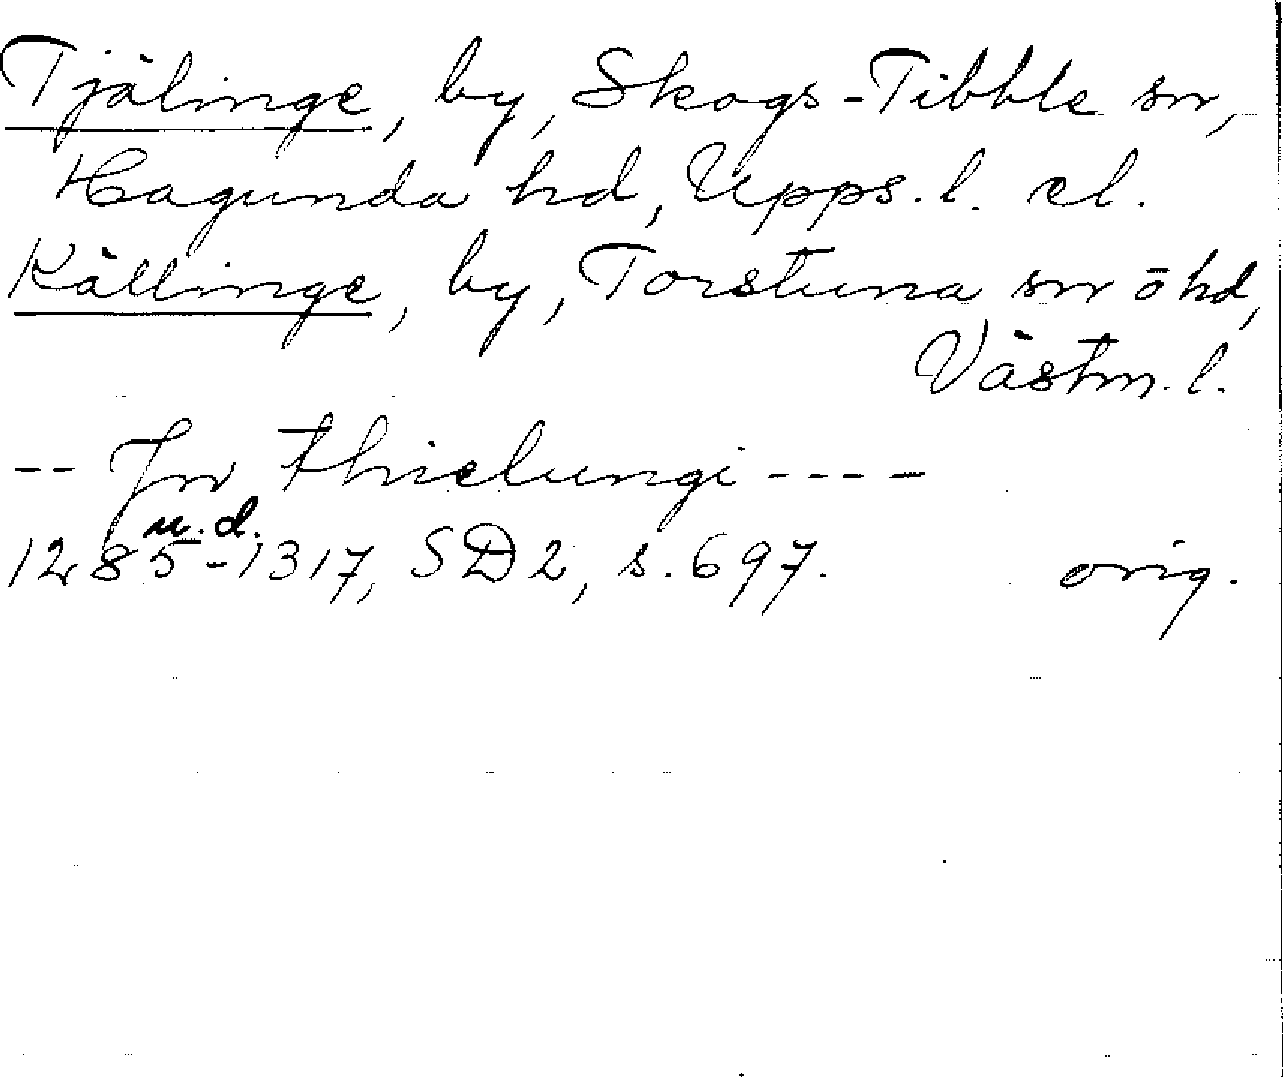 Tjälinge, by, Skogs-Tibble sn,
Hagunda hd, Upps. l. el.
Källinge, by, Torstuna sn ö hd,
Västm. l.
-- Jn thielungi ----
u. d.
1285-1317, SD 2, s. 697. orig.